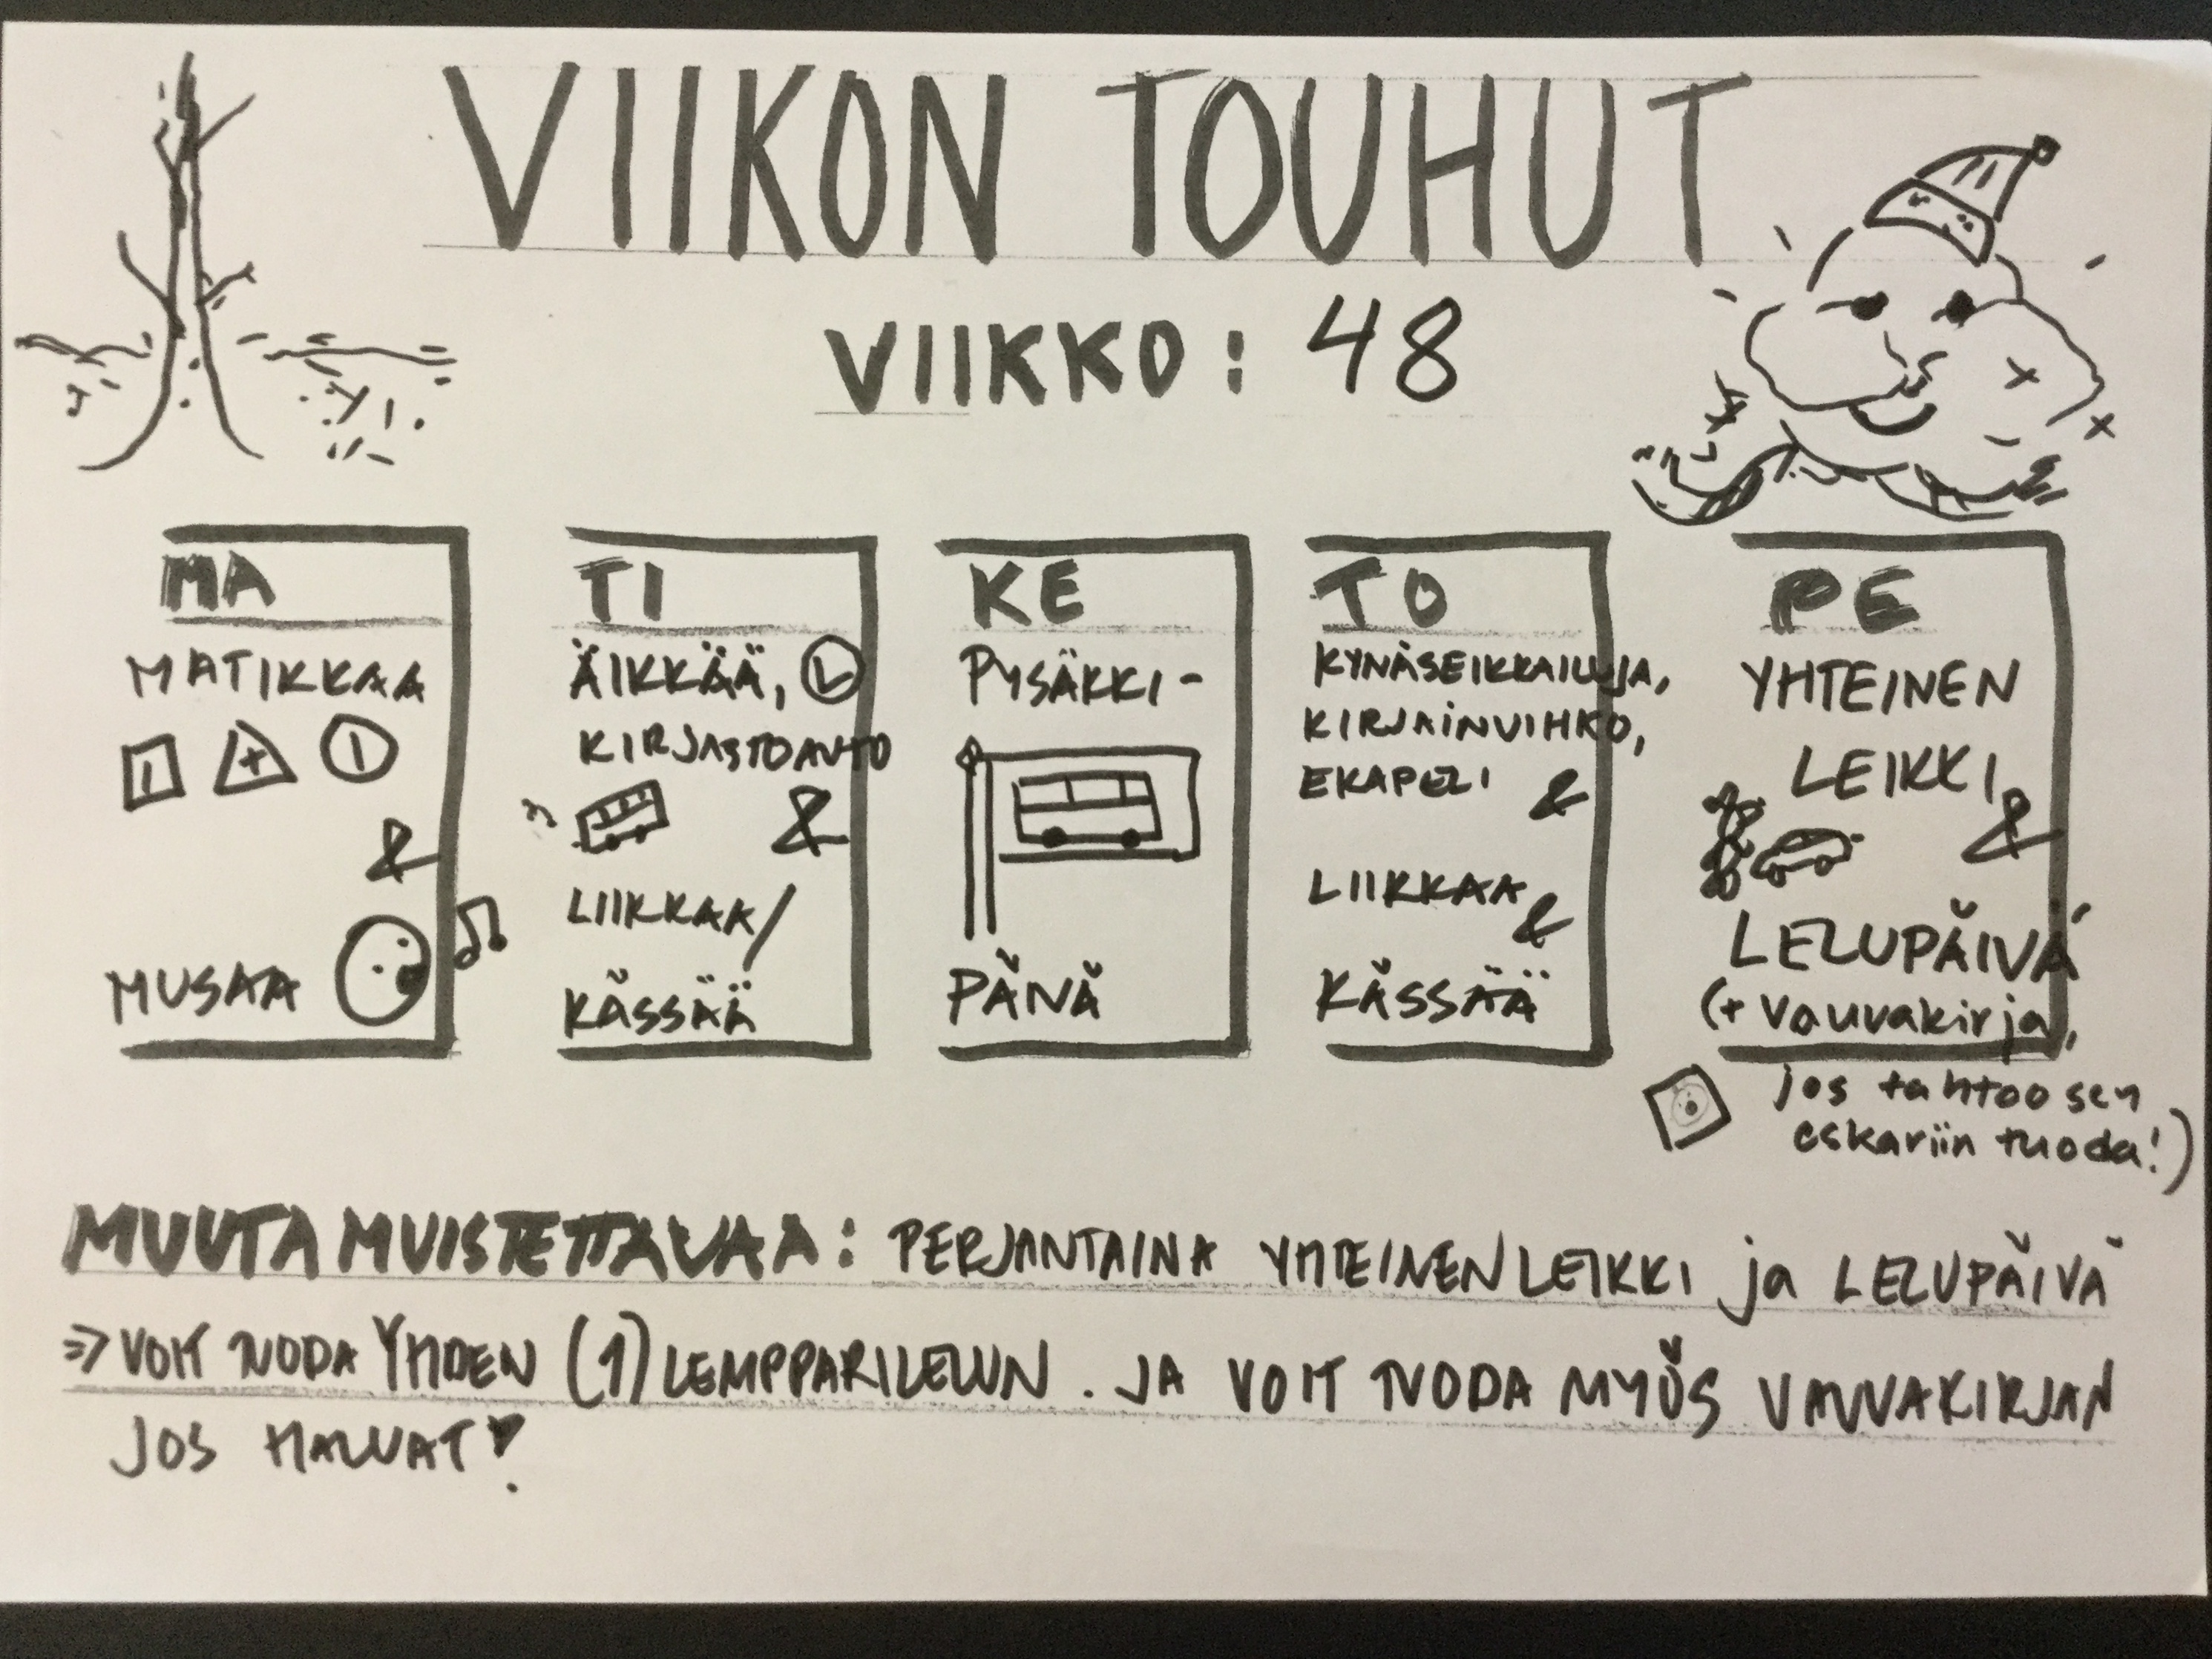 VIIKON TOUHUT
VIIKKO: 48
MA
MATIKKAA
1 + 1
&
MUSAA
TI
ÄIKKÄÄ, L
KIRJASTOAUTO
&
LIIKKAA/
KÄSSÄÄ
KE
PYSÄKKI-
PÄIVÄ
TO
KYNÄSEIKKAILUJA,
KIRJAINVIHKO,
EKAPELI &
LIIKKAA &
KÄSSÄÄ
PE
YHTEINEN
LEIKKI
&
LELUPÄIVÄ
(+ vauvakirja,
jos tahtoo sen
eskariin tuoda!)
MUUTA MUISTETTAVAA: PERJANTAINA YHTEINEN LEIKKI ja LELUPÄIVÄ
⇒ VOIT TUODA YHDEN (1) LEMPPARILELUN. JA VOIT TUODA MYÖS VAUVAKIRJAN
JOS HALUAT!